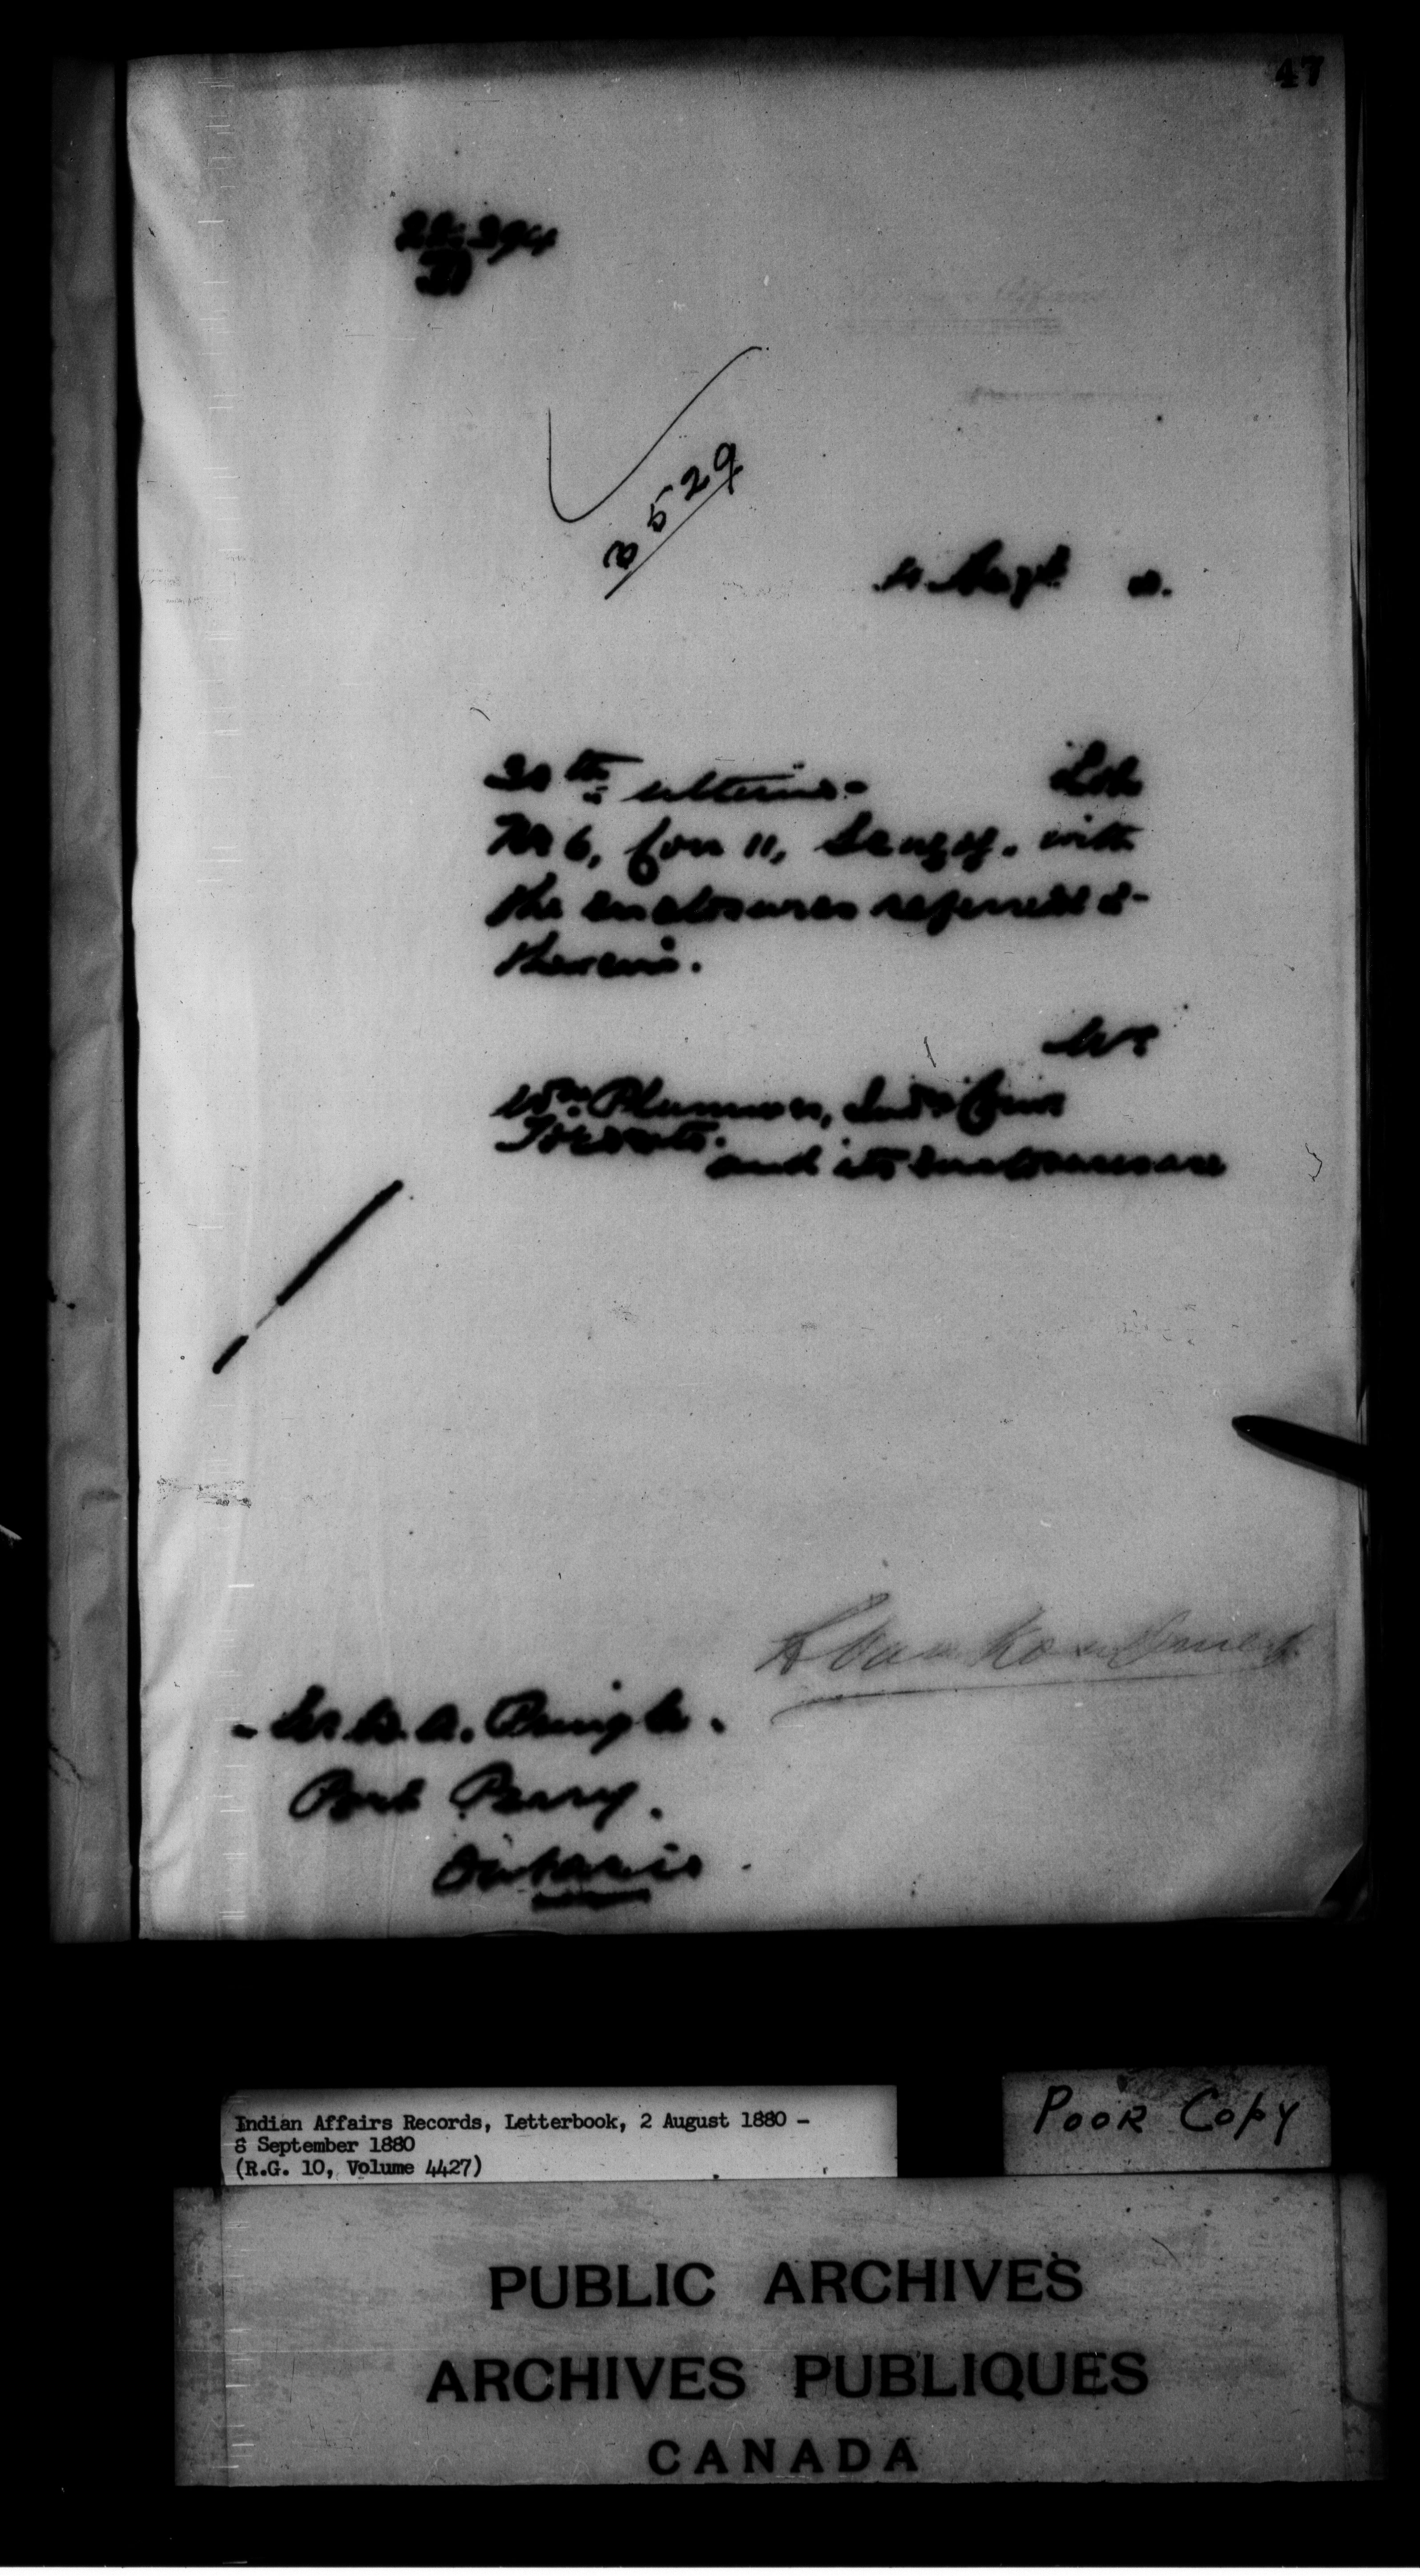 47
22.294
D
3529
4. Augt 0.
30th ultimo - Lot
No 6, Con 11, Scugog. with
the enclosures referred to
therein.
Mr
Wm Plummer, Ind. Comr
Toronto.
and its enclosures are
Port Perry.
Ontario.
Indian Affairs Records, Letterbook, 2 August 1880 -
8 September 1880
(R.G. 10, Volume 4427)
POOR COPY
PUBLIC ARCHIVES
ARCHIVES PUBLIQUES
CANADA